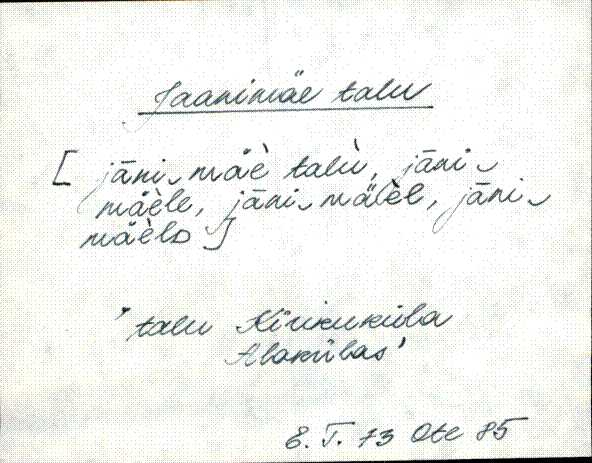 Jaanimäe talu
[ jāni‿mäè talù, jāni‿
mäèle, jāni‿mäèl, jāni‿
mäèls ]
' talu Kirikuküla
Alakülas '
E. T. 73 Ote 85